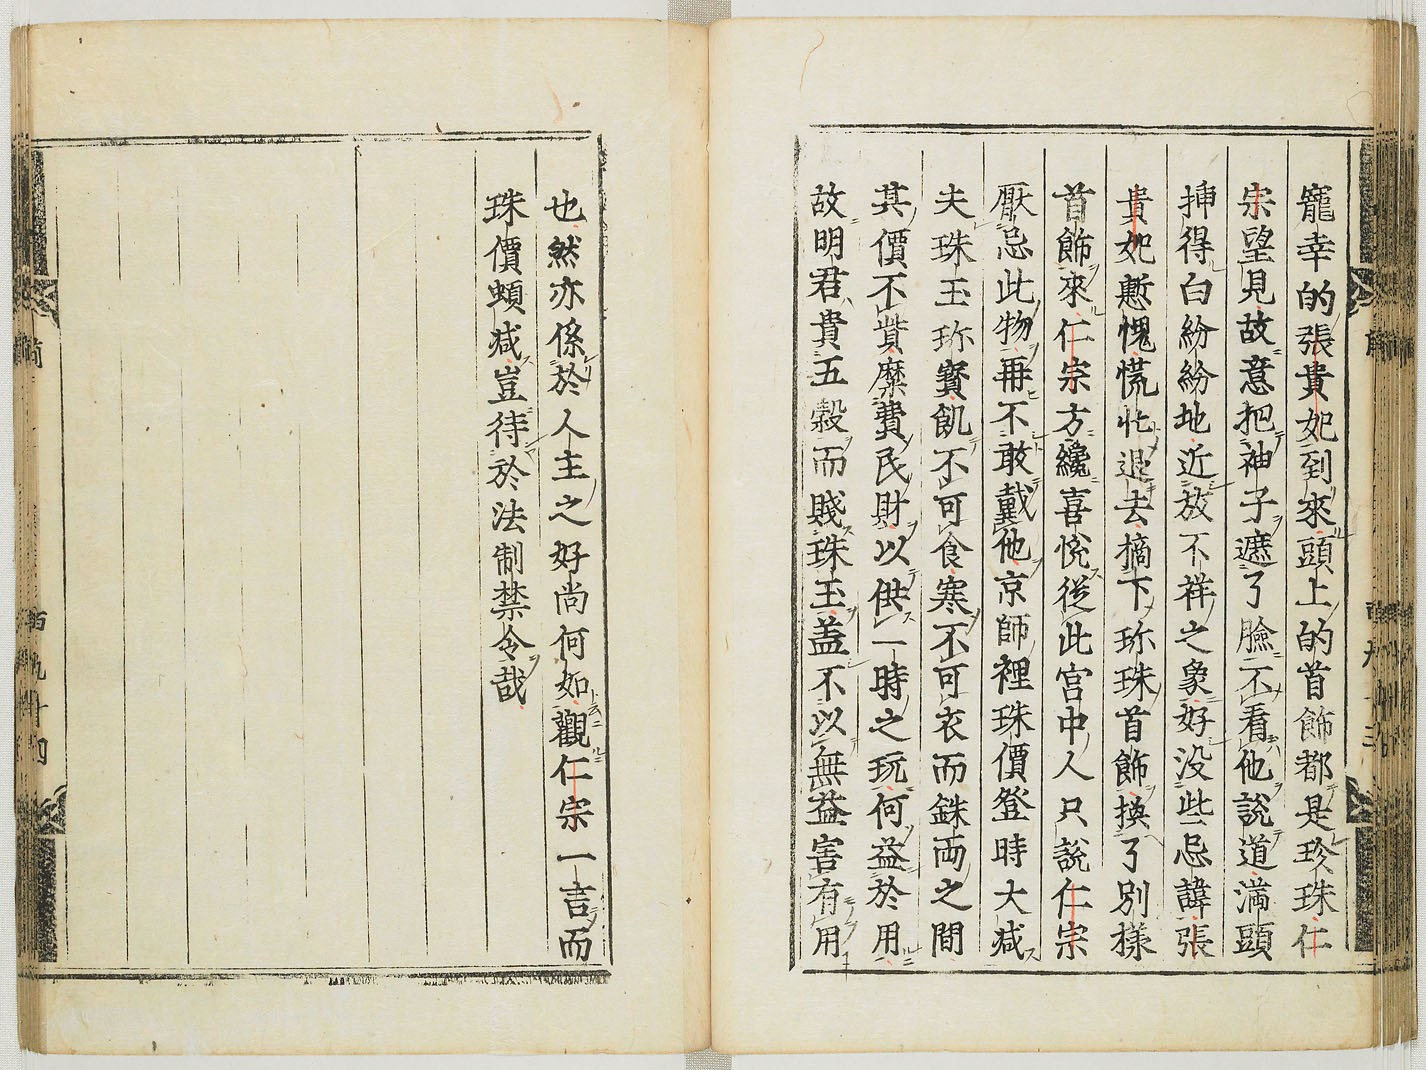 寵幸的張貴妃到來頭上的首飾都是珍珠仁
宗望見故意把袖子遮了臉不看他說道滿頭
揷得白紛紛地近放不祥之象好没些忌諱張
貴妃慙愧慌忙退去摘下珎珠首飾換了別樣
首飾來仁宗方纔喜悅從此宮中人只說仁宗
厭忌此物再不敢戴他京師裡珠價登時大減
夫珠玉珎寶飢不可食寒不可衣而銖兩之間
其價不貲糜費民財以供一時之玩何益於用
故明君貴五穀而賤珠玉盖不以無益害有用
也然亦係於人主之好尚何如觀仁宗一言而
珠價頓减豈待於法制禁令哉